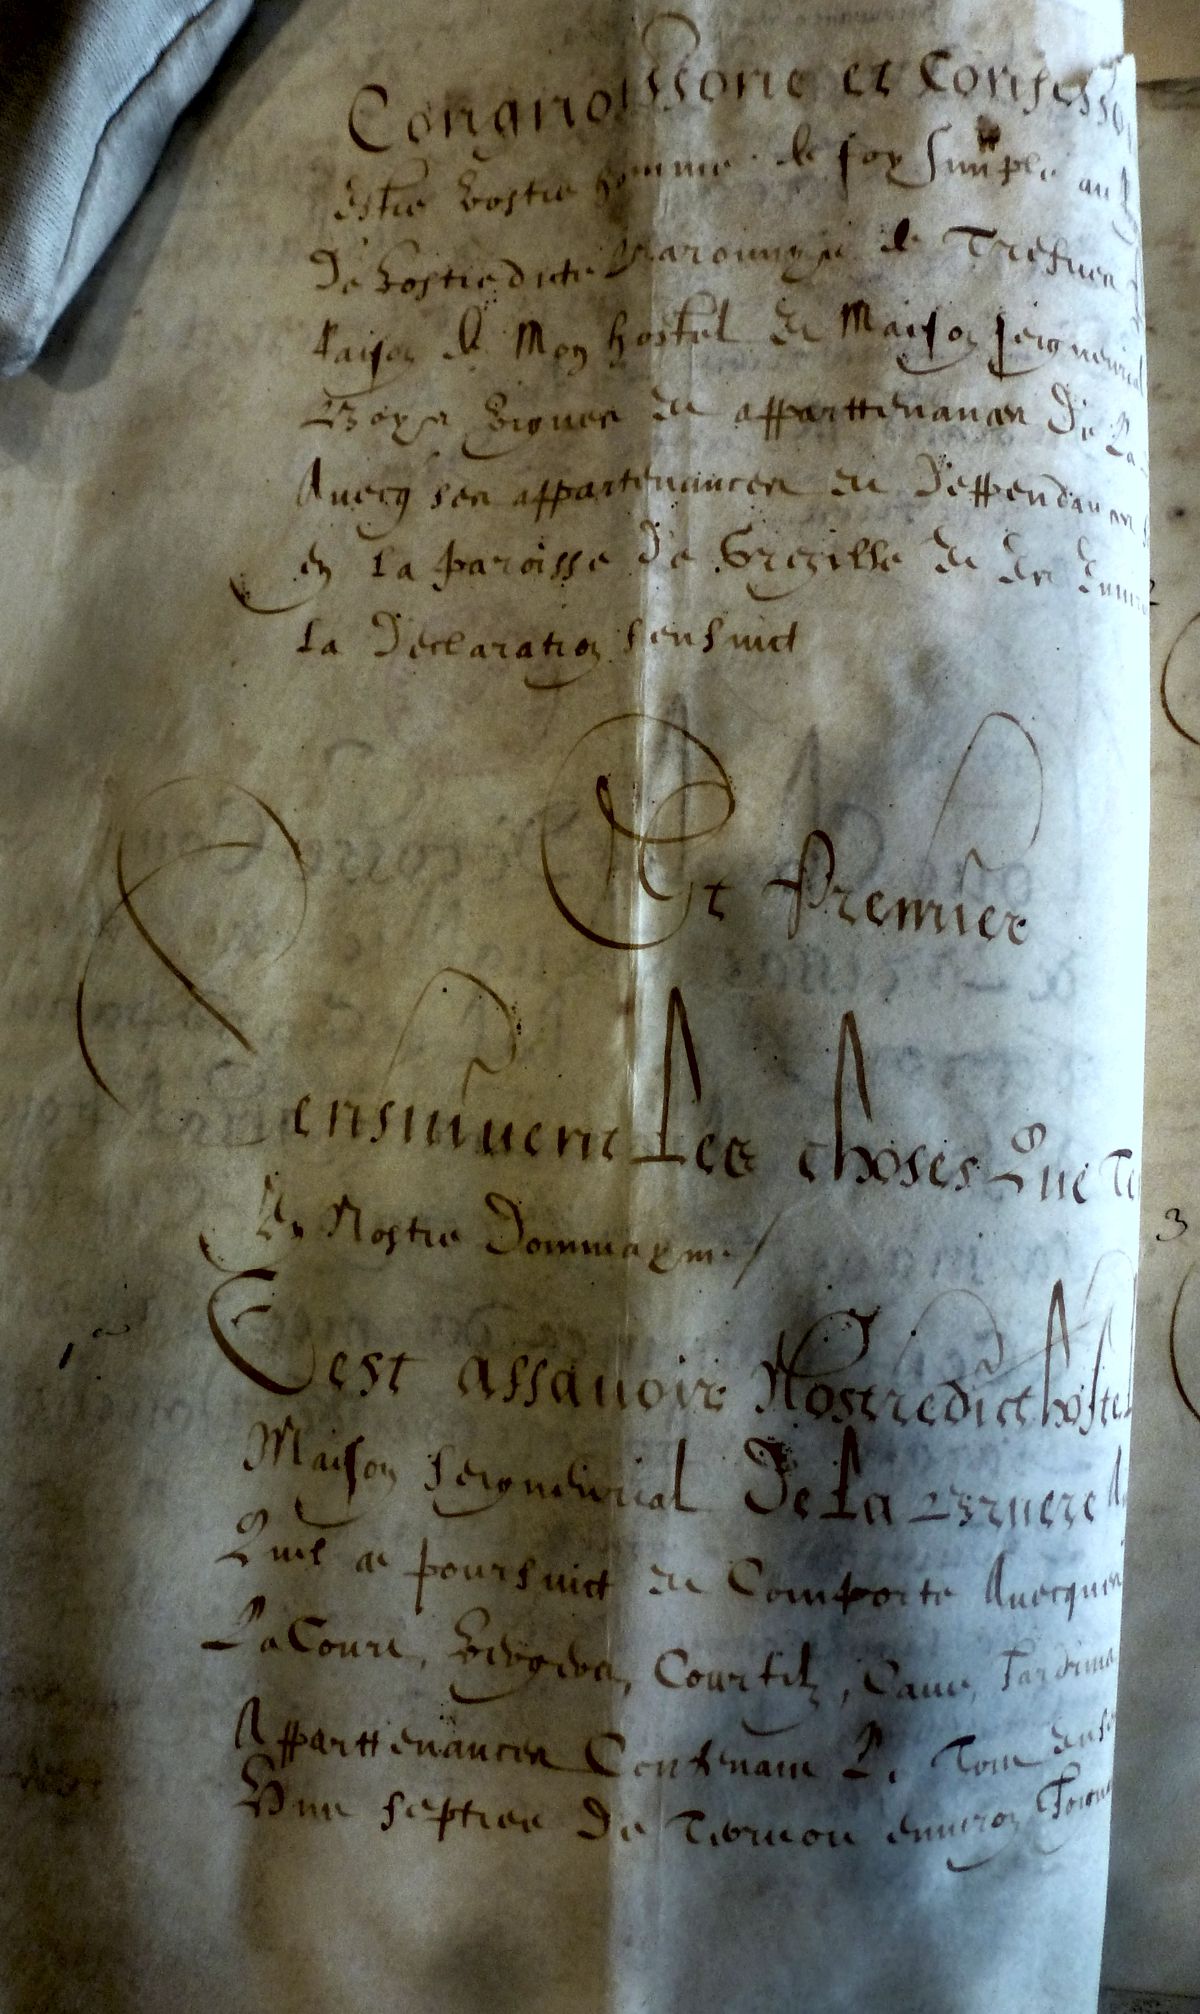 Congnoissons et Confesso
Estre Vostre homme de foy simple au
De Vostredicte Baronnye de Trefves
Raison de Mon hostel et Maison seigneurial
Boys Vignes et appartenances De La
Avecq ses appartenances et Deppendances
en La paroisse De Grezille et
La Declaration sensuict
Et Premier
Sensuivent Les choses Que Te
En Nostre Dommayne
1
3
Cest assavoir Nostredict hostel
Maison seigneurial De La Bruere
Quil se poursuict et Comporte Avecques
La Court, Vergers, Courtilz, Cave, Jardins
Appartenances Contenant Le Tout
Une septree De Terre ou environ Joign